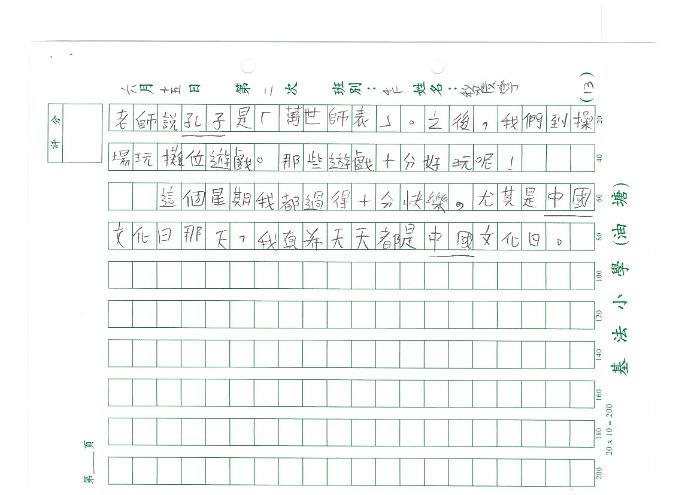 六月十五日 第二次 班別： 姓名： (13)
評分
老師說孔子是「萬世師表」。之後，我們到操 20
場玩攤位遊戲。那些遊戲十分好玩呢！ 40
這個星期我都過得十分快樂，尤其是中國 60
文化日那天，我真希天天都是中國文化日。 80
100
120
140
160
180
200
第 頁
20 x 10 = 200
基法小學(油塘)